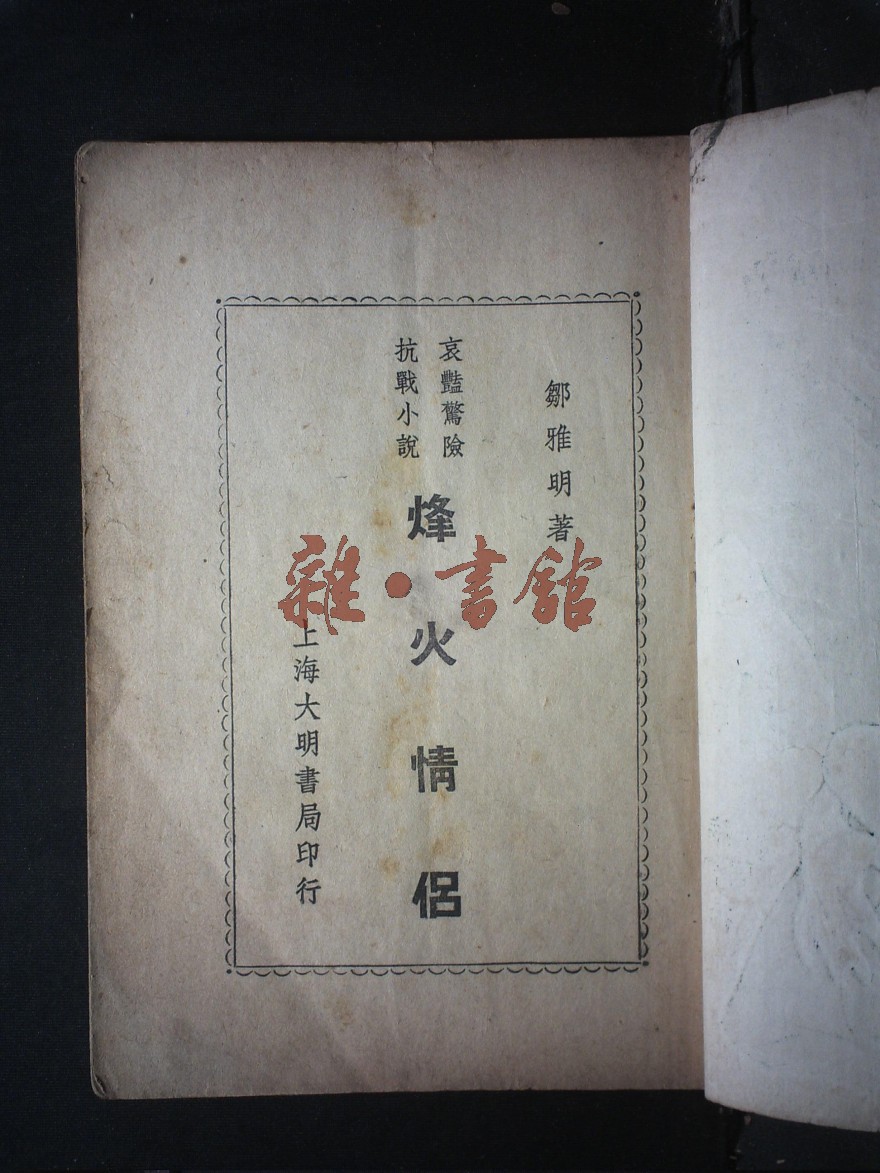 鄒雅明著
哀豔驚險
抗戰小說
烽火情侶
上海大明書局印行
雜·書館